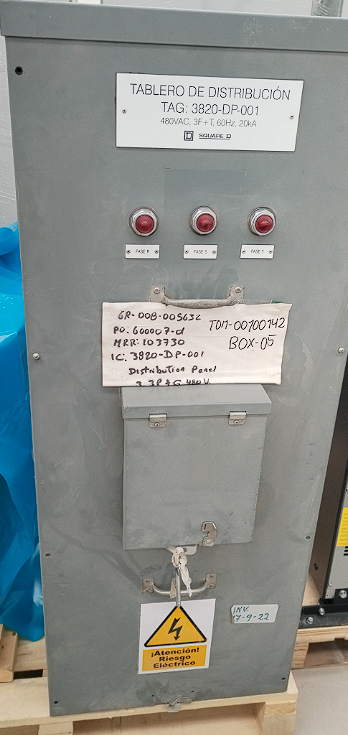 TABLERO DE DISTRIBUCIÓN
TAG: 3820-DP-001
480VAC, 3F+T, 60Hz, 20kA
SQUARE D
FASE R
FASE S
FASE T
GR-008-005632
PO: 600007-d
MRR: 103730
IC: 3820-DP-001
Distribution Panel
TOM-00100142
BOX-05
¡Atención!
Riesgo
Eléctrico
INV.
7-9-22